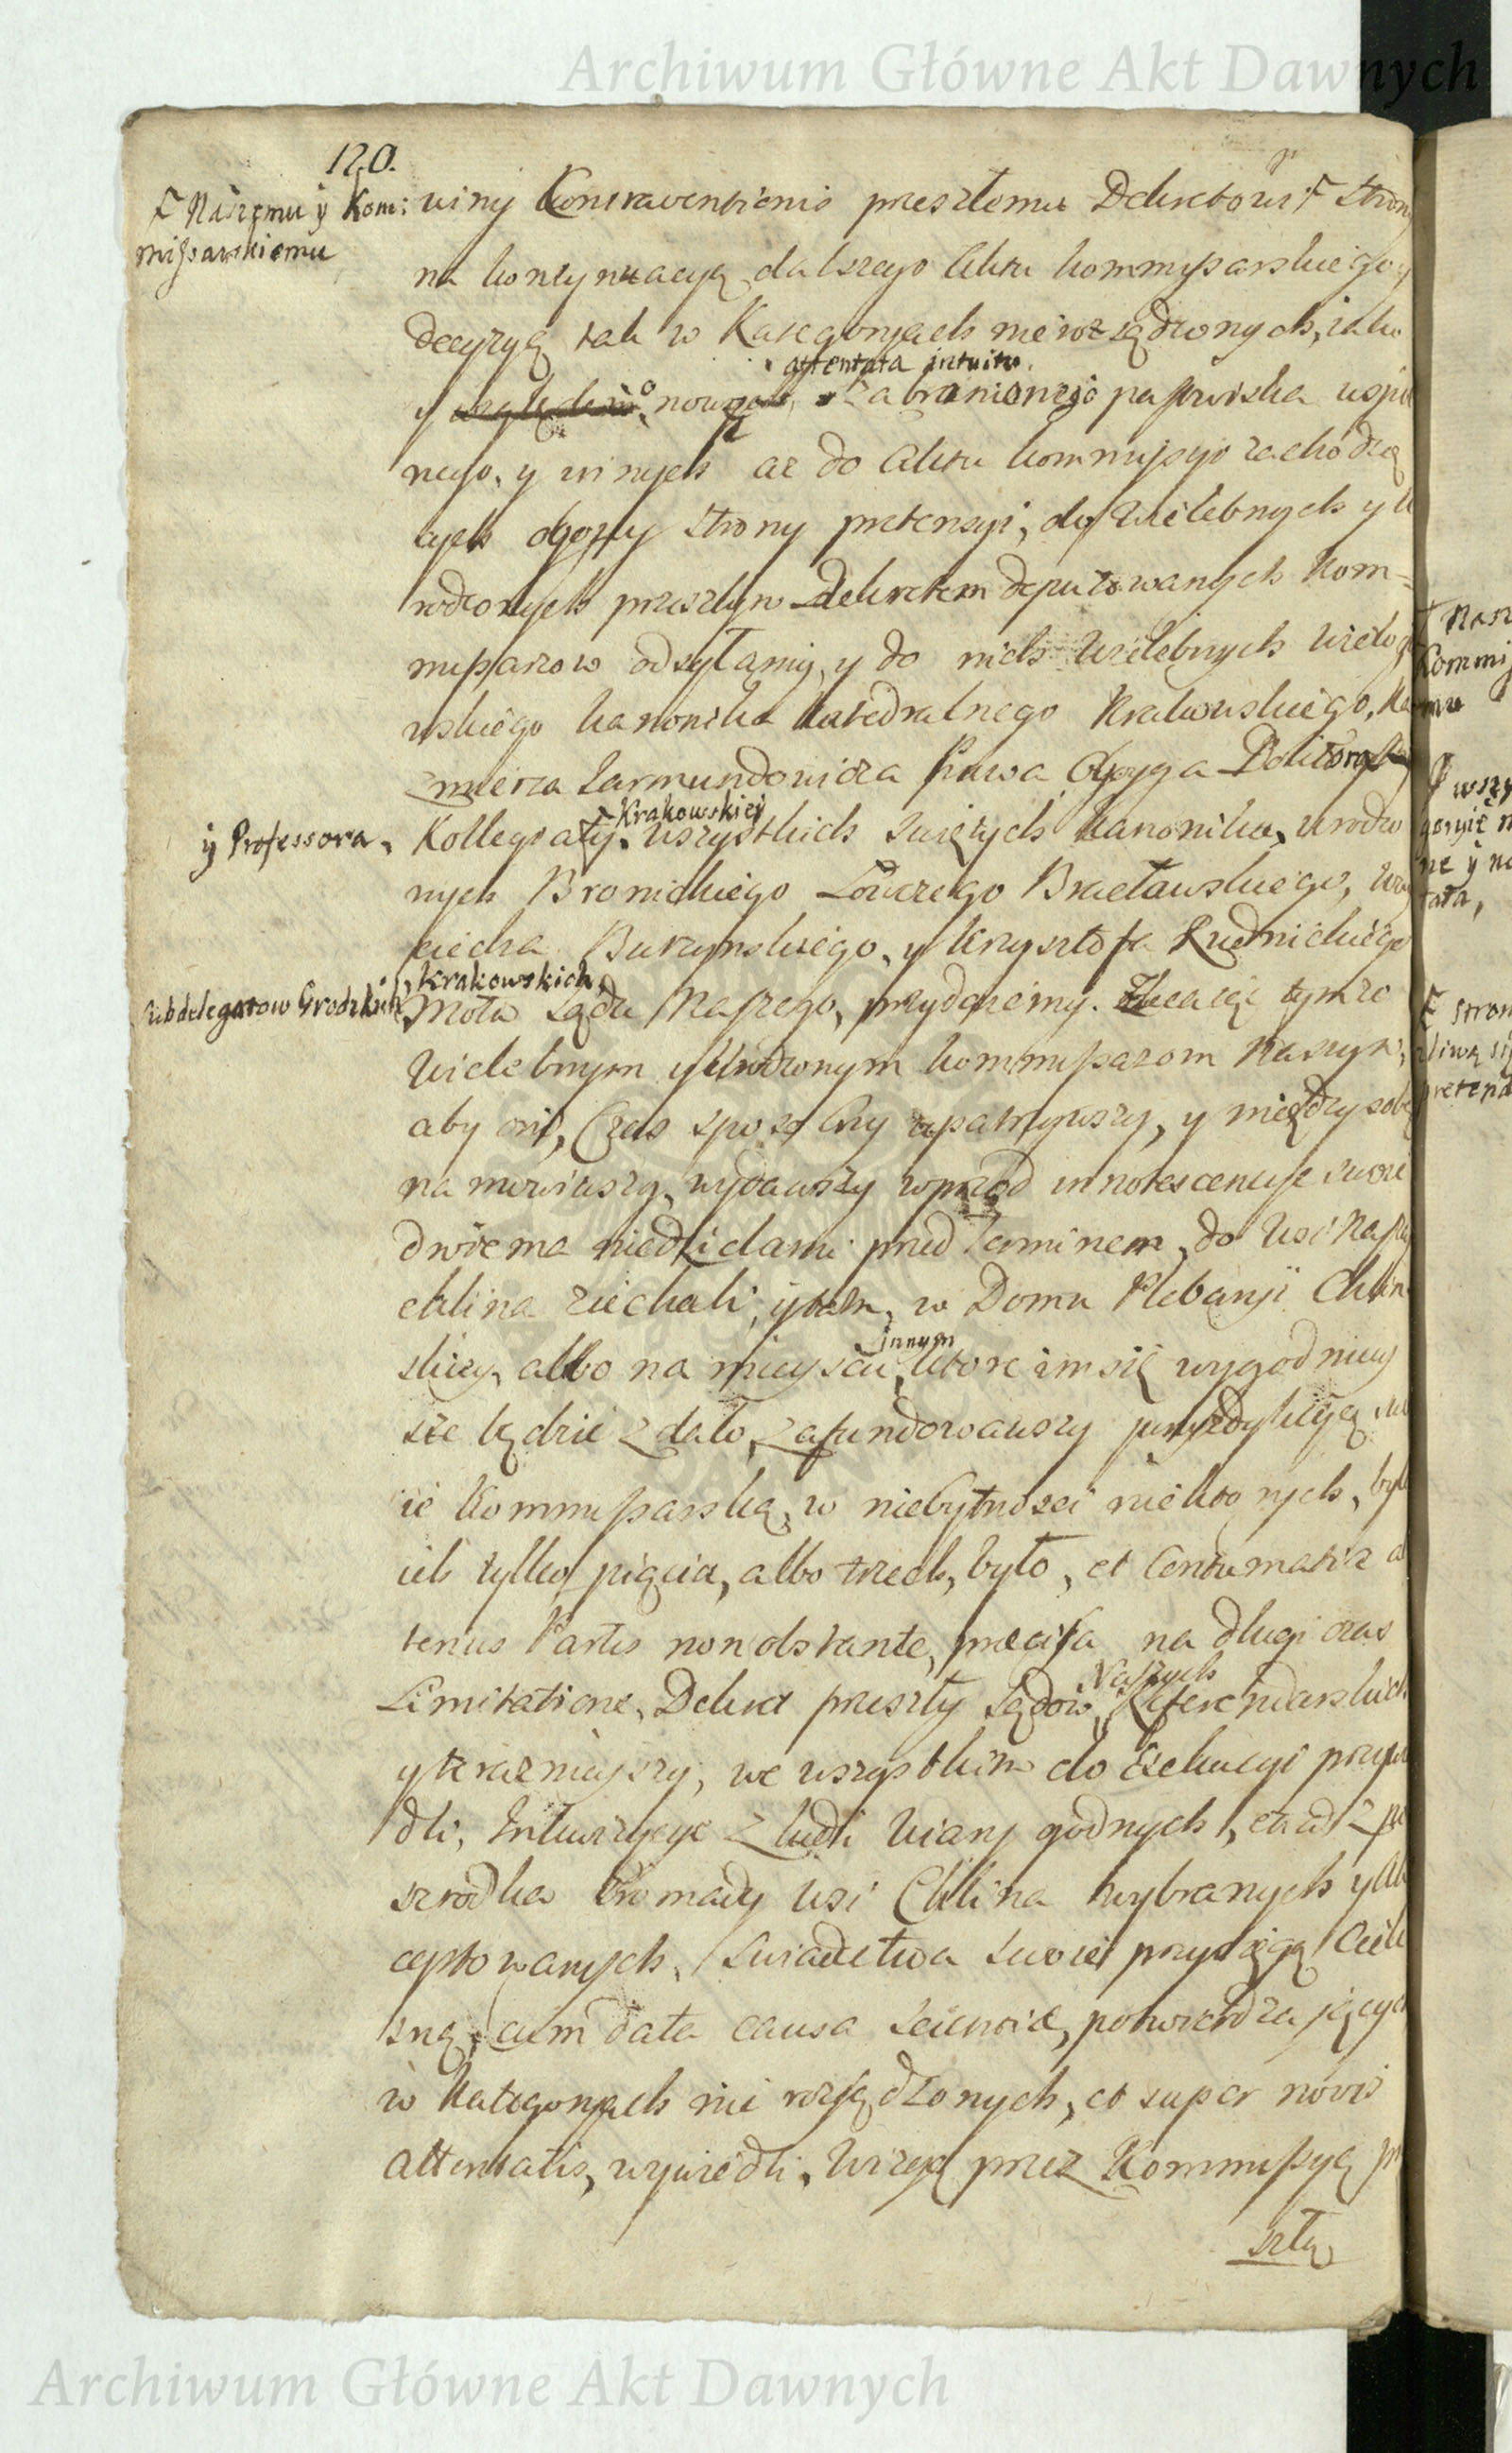 Archiwum Główne Akt Dawnych
120.
Naszemu y Kom:
missarskiemu
winy Contraventionis przeszłemu Dekretowi Strony
na kontynuacyą dalszego Aktu kommissarskiego y
decyzyą tak w Kategoryach nierozsądzonych, iako
attentata intuitu
y nowego zabronionego pastwiska uspio
nego, y innych aż do Aktu kommissyi zachodzą
cych oboiey Strony pretensyi, do Wielebnych y U
rodzonych przeszłym Dekretem deputowanych Kom=
missarzow odsyłamy, y do nich Wielebnych Wielog
wskiego kanonika katedralnego Krakowskiego, Ka
zmierza Jarmundowicza Prawa Oboyga Doktora
Krakowskiey
y Professora
Kollegiaty wszystkich Swiętych kanonika, urodzo
nych Bronickiego Łowczego Bracławskiego, Woy
ciecha Burzynskiego, y krzysztofa Rudnickiego
Krakowskich
Subdelegatow Grodzkich
Mota Sądu Naszego, przydaiemy. Zlecaiąc tymże
Wielebnym y Urodzonym kommissarzom Naszym,
aby oni, Czas sposobny upatrzywszy, y między sobą
namowiwszy, wydawszy wprzod innotescencye swoie
dwiema niedzielami przed terminem, do Wsi Naszey
Chlina ziechali, y tam, w Domu Plebanji Chlin
innym
skiey, albo na mieyscu, ktore im się wygodniey
sze będzie zdało, zafundowawszy juryzdykcyą sw
ię kommissarską, w niebytnosci niektorych, byle
ich tylko pięciu, albo trzech, było, et Contumacia a
terius Partis non obstante, praecisa na długi czas
Naszych
Limitatione, Dekret przeszły Sądow Referendarskich
y teraznieyszy, we wszystkim do Exekucyi przywie
dli, Inkwizycye z ludzi Wiary godnych, czadz z po
szrodka Gromady Wsi Chlina wybranych y Ak
ceptowanych, Swiadectwa swoie przysięgą Ciele
sną, cum data causa scientiae, potwierdzaiących
w kategoryach nie rozsądzonych, et super novis
attentatis, wywiedli, Wizyą przez Kommissyą prze
szłą
Archiwum Główne Akt Dawnych